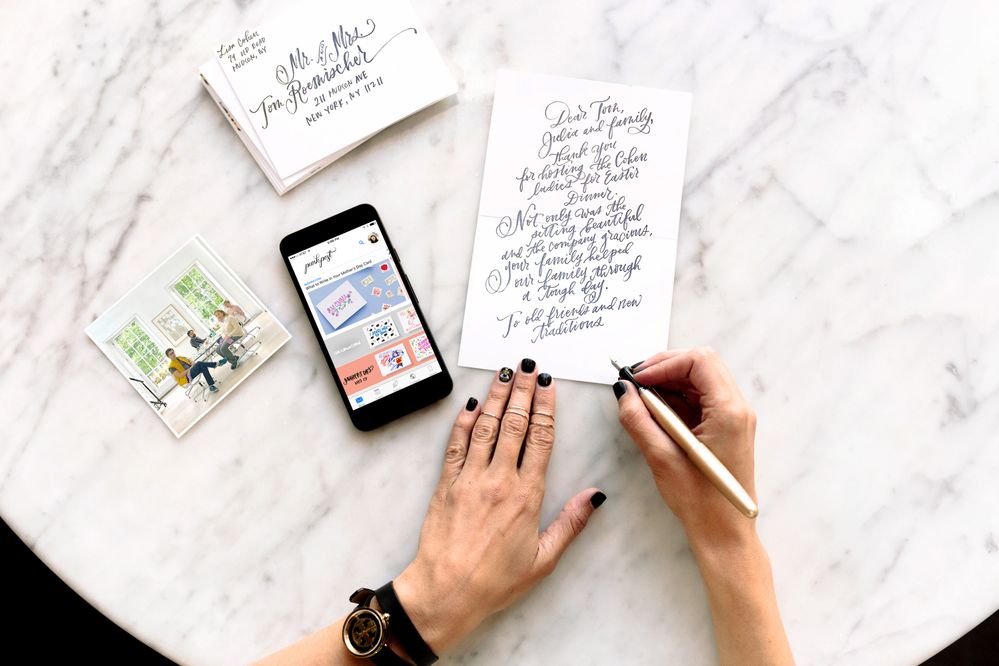 Lisa Cohen
79 OLD ROAD
HUDSON, NY
Mr. & Mrs.
Tom Roemischer
211 HUDSON AVE
NEW YORK, NY 11211
Dear Tom,
Julia and family,
thank you
for hosting the Cohen
ladies for Easter
Dinner.
Not only was the
setting beautiful
and the company gracious,
your family helped
our family through
a tough day.
To old friends and new
traditions
punkpost
What to Write in Your Mother's Day Card